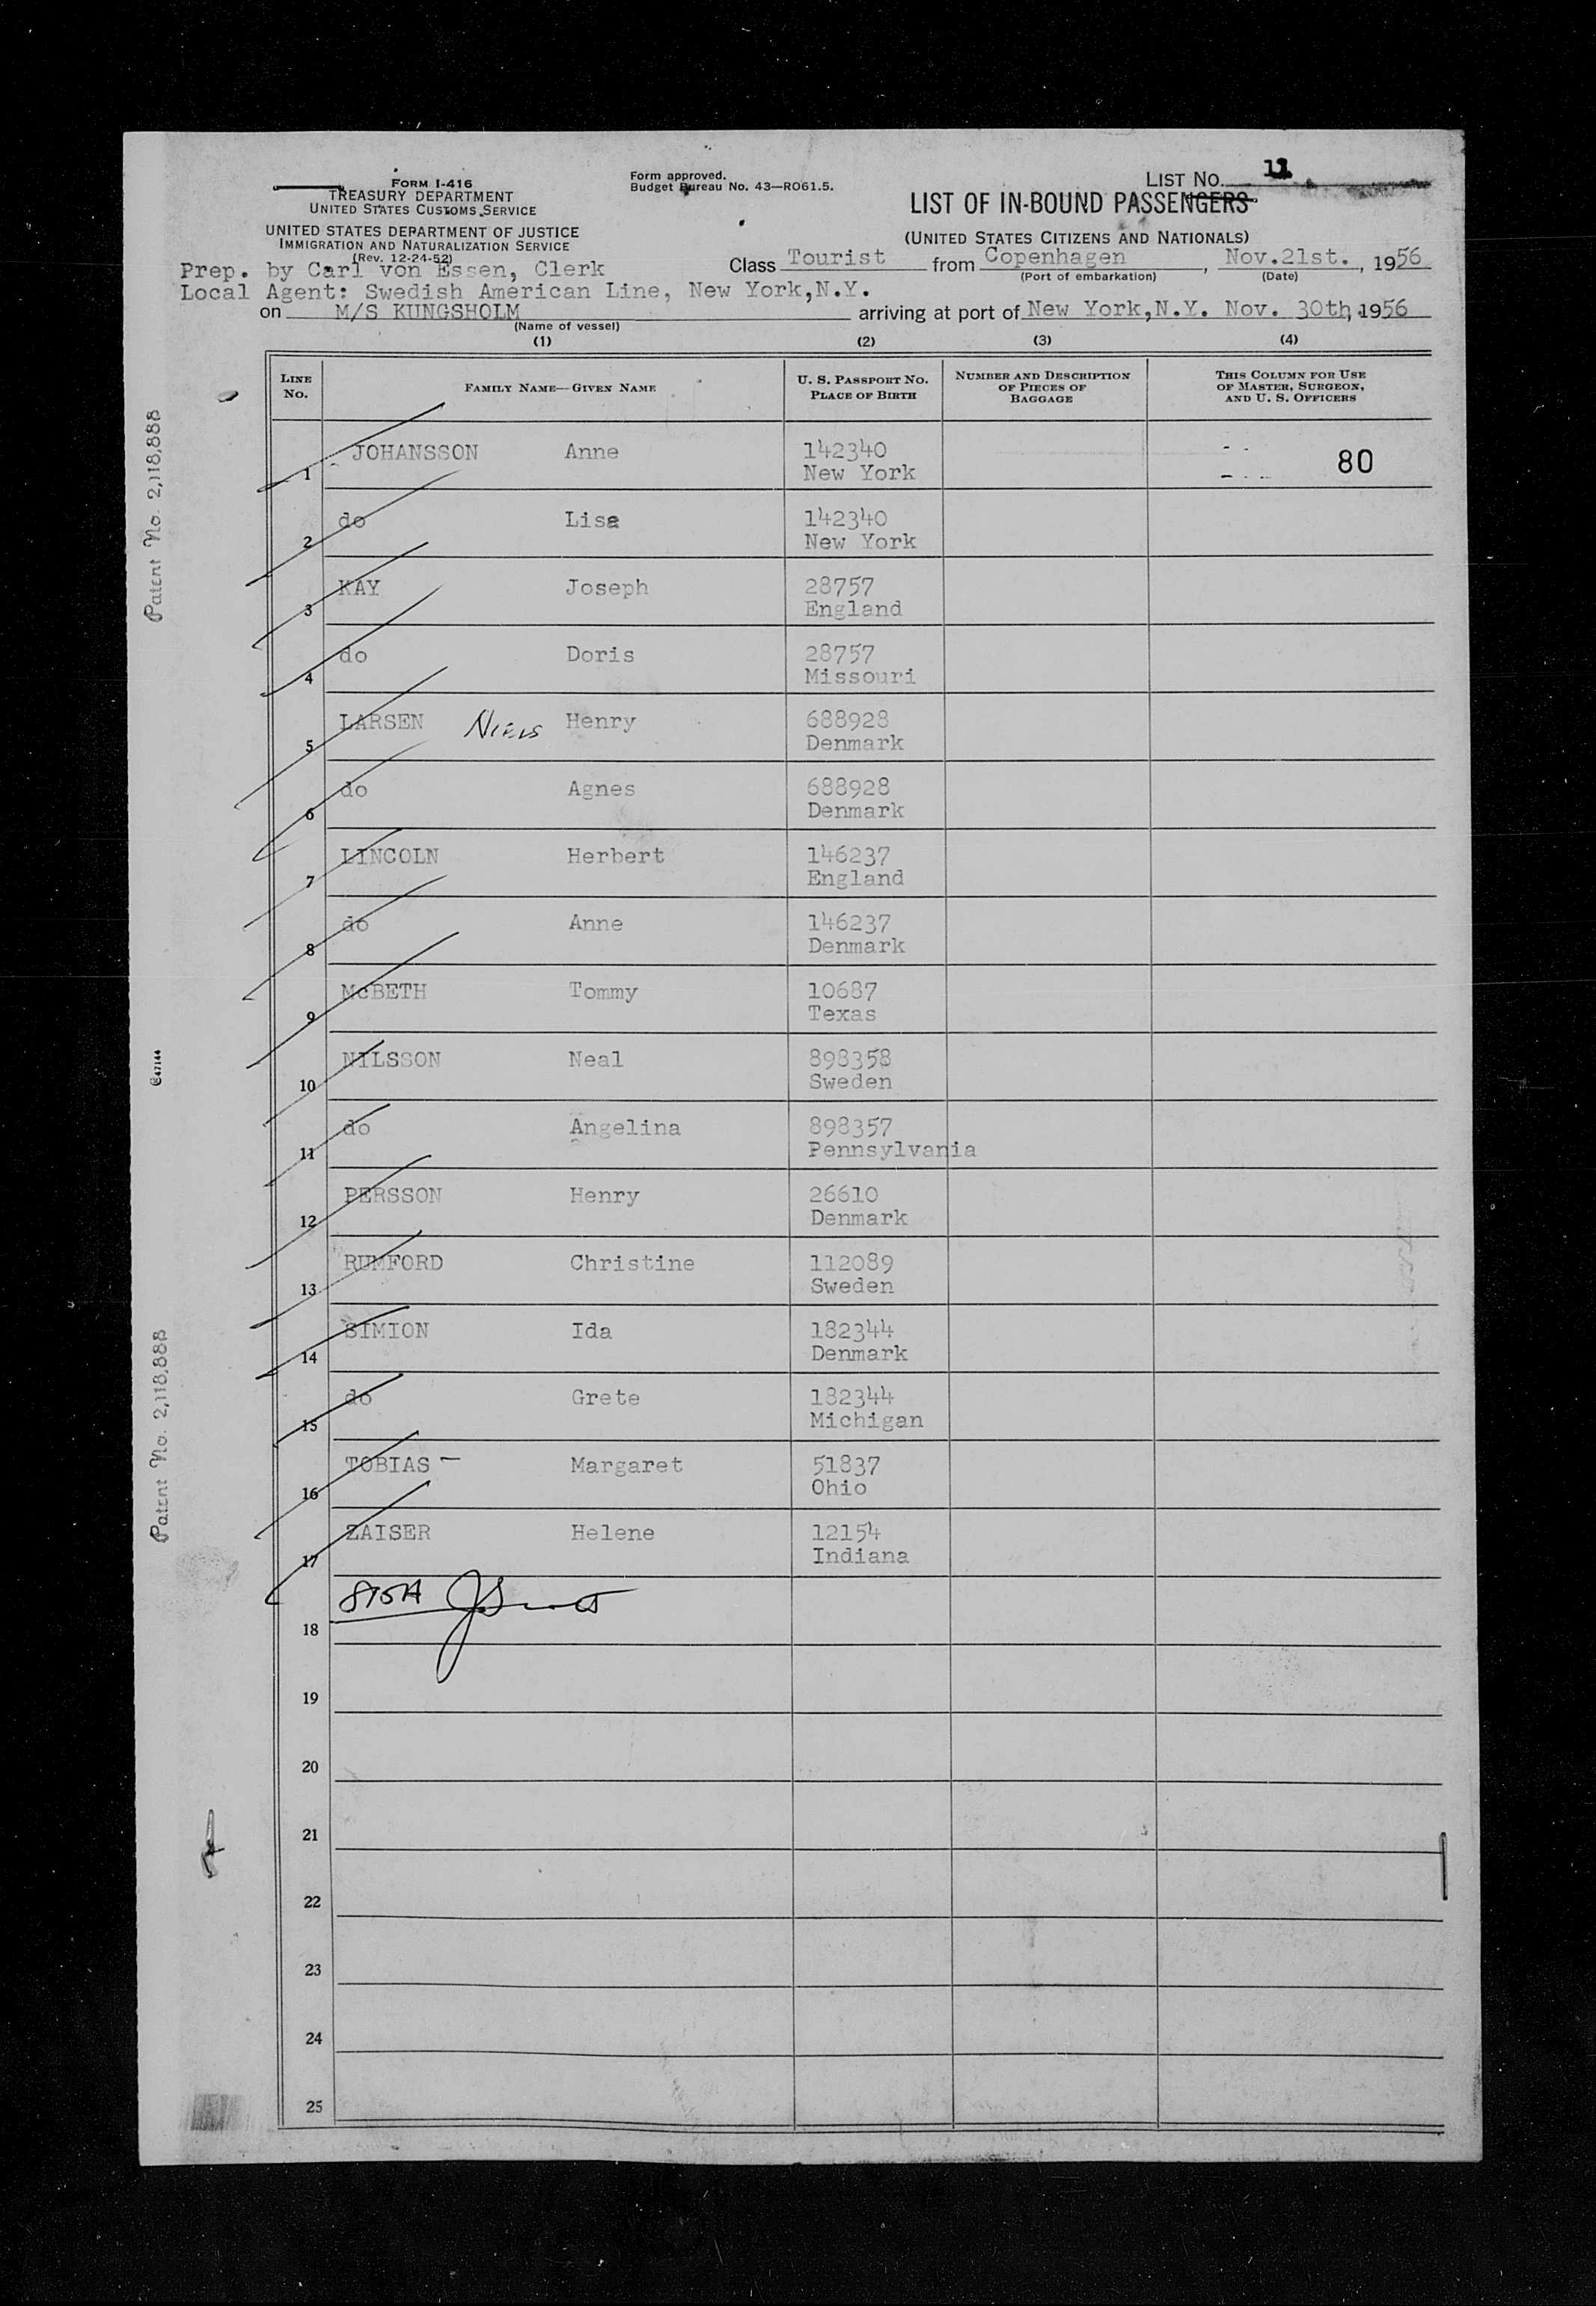 FORM I-416
TREASURY DEPARTMENT
UNITED STATES CUSTOMS SERVICE
UNITED STATES DEPARTMENT OF JUSTICE
IMMIGRATION AND NATURALIZATION SERVICE
(Rev. 12-24-52)
Form approved.
Budget Bureau No. 43—RO61.5.
LIST NO. 11
LIST OF IN-BOUND PASSENGERS
(UNITED STATES CITIZENS AND NATIONALS)
Prep. by Carl von Essen, Clerk
Class Tourist from Copenhagen, Nov.21st., 1956
(Port of embarkation) (Date)
Local Agent: Swedish American Line, New York,N.Y.
on M/S KUNGSHOLM arriving at port of New York,N.Y. Nov. 30th, 1956
(Name of vessel)
(1) (2) (3) (4)
LINE NO. FAMILY NAME—GIVEN NAME U. S. PASSPORT NO. PLACE OF BIRTH NUMBER AND DESCRIPTION OF PIECES OF BAGGAGE THIS COLUMN FOR USE OF MASTER, SURGEON, AND U. S. OFFICERS
1 JOHANSSON Anne 142340 80
New York
2 do Lise 142340
New York
3 KAY Joseph 28757
England
4 do Doris 28757
Missouri
5 LARSEN Niels Henry 688928
Denmark
6 do Agnes 688928
Denmark
7 LINCOLN Herbert 146237
England
8 do Anne 146237
Denmark
9 McBETH Tommy 10687
Texas
10 NILSSON Neal 898358
Sweden
11 do Angelina 898357
Pennsylvania
12 PERSSON Henry 26610
Denmark
13 RUMFORD Christine 112089
Sweden
14 SIMION Ida 182344
Denmark
15 do Grete 182344
Michigan
16 TOBIAS — Margaret 51837
Ohio
17 ZAISER Helene 12154
Indiana
18
19
20
21
22
23
24
25
Patent No. 2,118,888
Patent No. 2,118,888